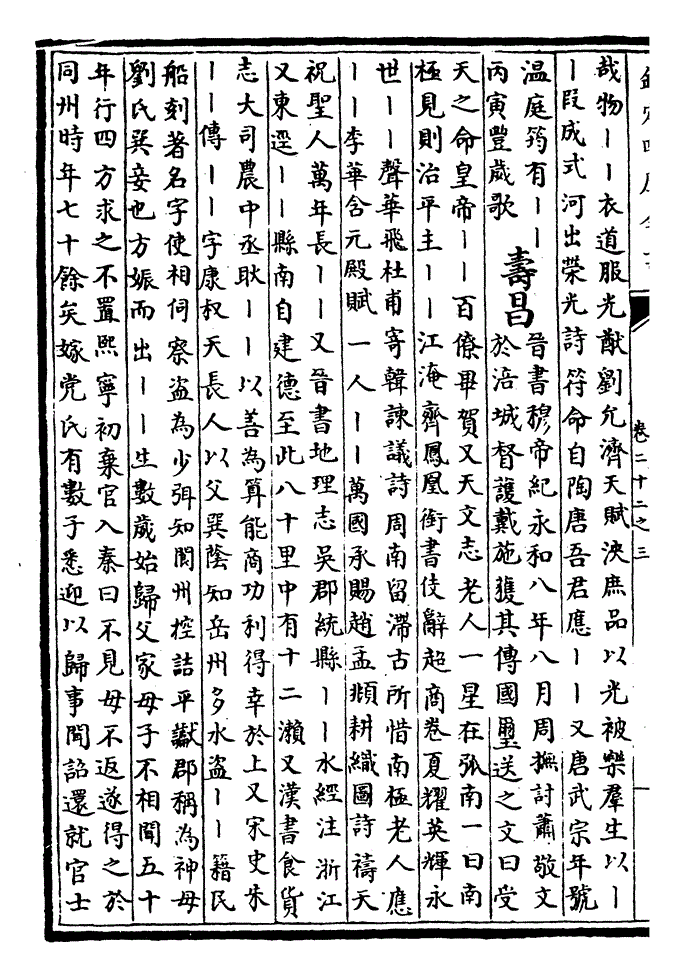 卷二十二之三
哉物一一衣道服光猷劉允濟天賦泱庶品以光被樂羣生以一
一段成式河出榮光詩符命自陶唐吾君應一一又唐武宗年號
温庭筠有一一
丙寅豐歲歌
壽昌
晉書穆帝紀永和八年八月周撫討蕭敬文
於涪城督護戴施獲其傳國璽送之文曰受
天之命皇帝一一百僚畢賀又天文志老人一星在弧南一曰南
極見則治平主一一江淹齊鳳凰銜書伎辭超商卷夏耀英輝永
世一一聲華飛杜甫寄韓諫議詩周南留滯古所惜南極老人應
一一李華含元殿賦一人一一萬國承賜趙孟頫耕織圖詩禱天
祝聖人萬年長一一又晉書地理志吳郡統縣一一水經注浙江
又東逕一一縣南自建德至此八十里中有十二瀨又漢書食貨
志大司農中丞耿一一以善為算能商功利得幸於上又宋史朱
一一傳一一字康叔天長人以父巽蔭知岳州多水盜一一籍民
船刻著名字使相伺察盜為少弭知閬州控詰平讞郡稱為神母
劉氏巽妾也方娠而出一一生數歲始歸父家母子不相聞五十
年行四方求之不置熙寧初棄官入秦曰不見母不返遂得之於
同州時年七十餘矣嫁党氏有數子悉迎以歸事聞詔還就官士